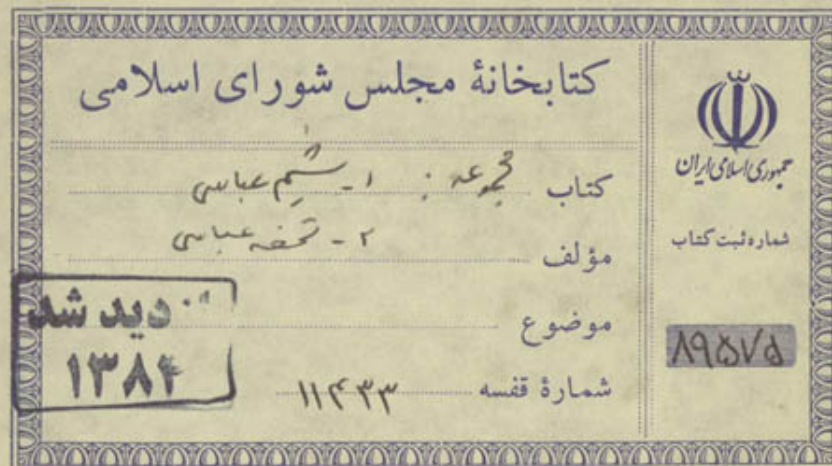 کتابخانهٔ مجلس شورای اسلامی
کتاب مجموعه : ۱ - شیم عباسی
مؤلف ۲ - تحفه عباسی
موضوع
شمارهٔ قفسه ۱۱۴۳۳
جمهوری اسلامی ایران
شماره ثبت کتاب
۸۹۵۷۵
دید شد
۱۳۸۴